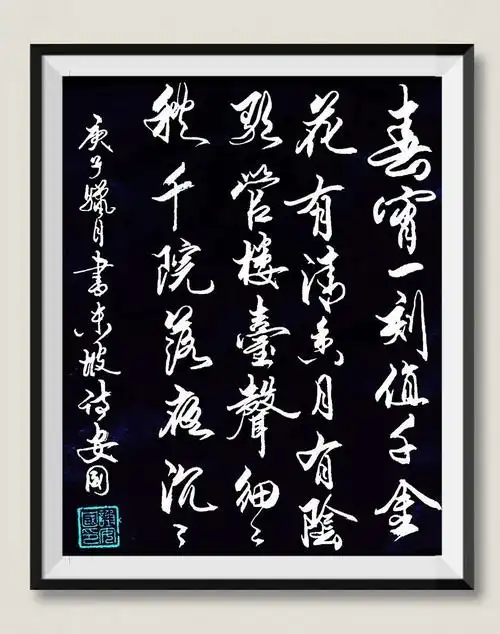 春宵一刻值千金
花有清香月有陰
歌管樓臺聲細〻
秋千院落夜沉〻
庚子臘月書东坡诗安國